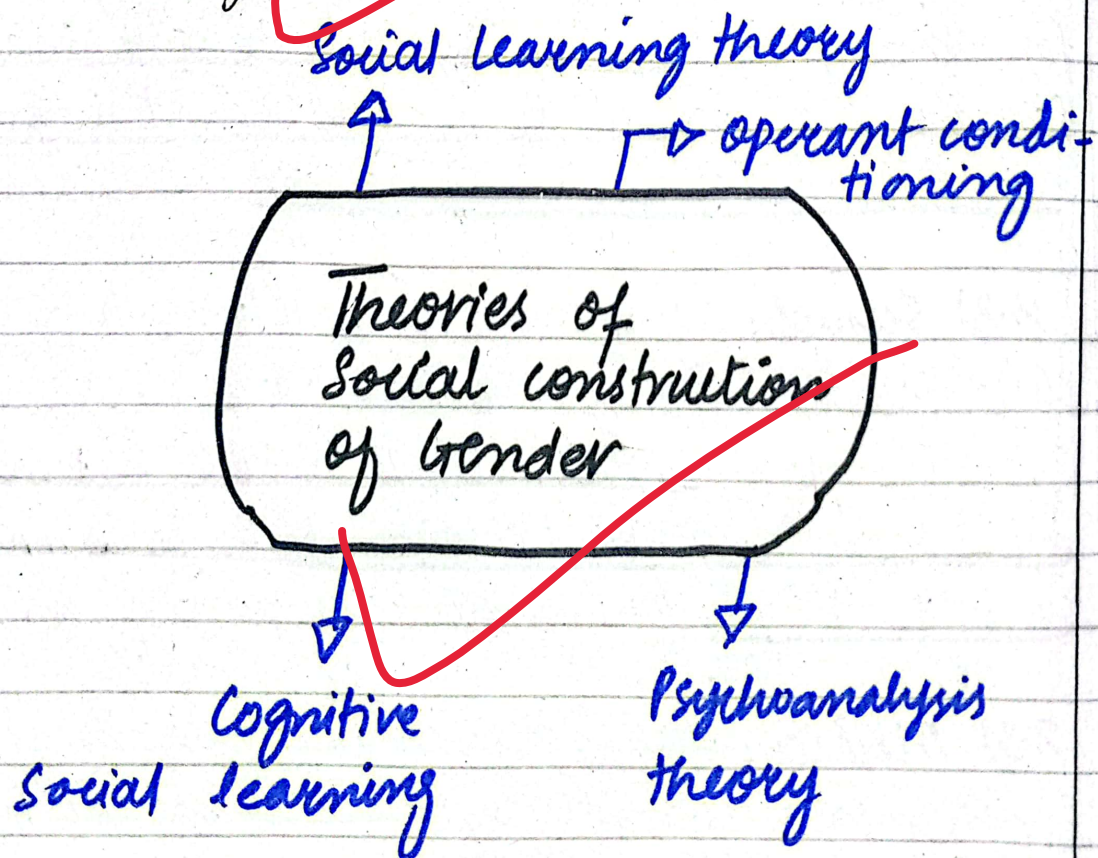 Social learning theory
operant condi-
tioning
Theories of
Social construction
of Gender
Cognitive
Social learning
Psychoanalysis
theory